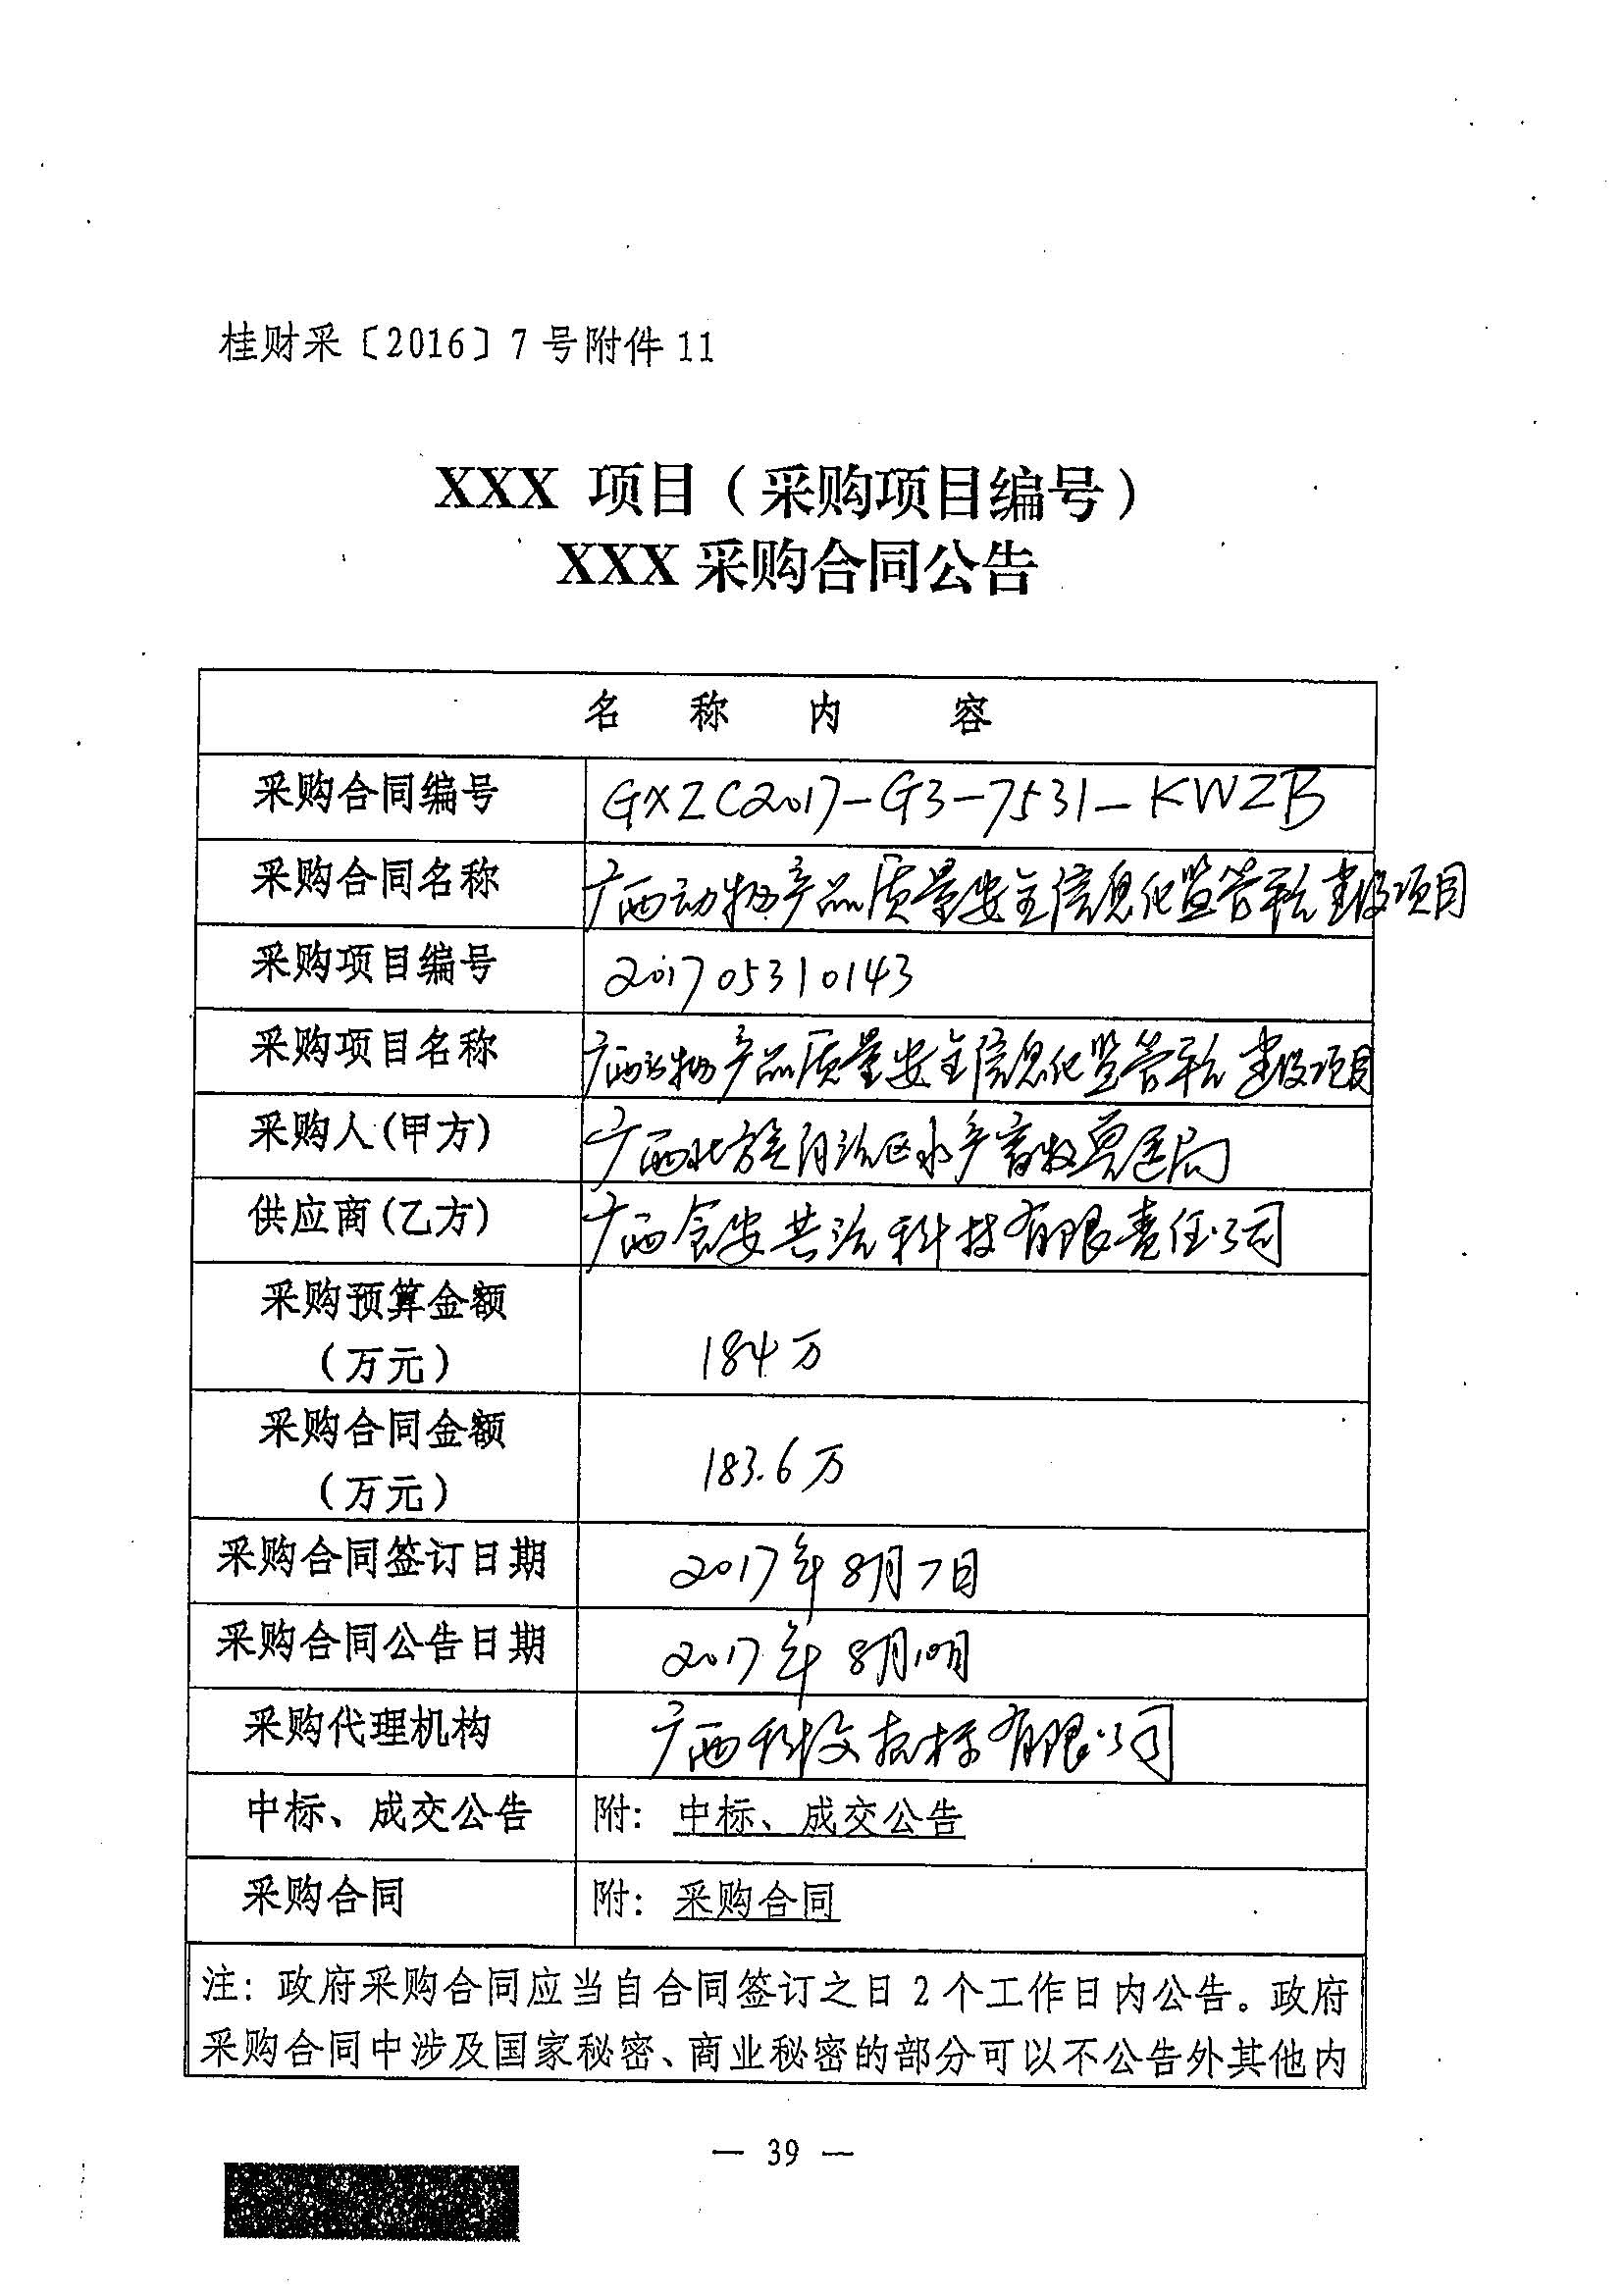 桂财采〔2016〕7号附件11
XXX 项目(采购项目编号)
XXX 采购合同公告
名 称 内 容
采购合同编号 GXZC2017-G3-7531-KWZB
采购合同名称 广西动物产品质量安全信息化监管平台建设项目
采购项目编号 201705310143
采购项目名称 广西动物产品质量安全信息化监管平台建设项目
采购人(甲方) 广西壮族自治区水产畜牧兽医局
供应商(乙方) 广西食安共治科技有限责任公司
采购预算金额
(万元) 184万
采购合同金额
(万元) 183.6万
采购合同签订日期 2017年8月7日
采购合同公告日期 2017年8月
采购代理机构 广西科文招标有限公司
中标、成交公告 附:中标、成交公告
采购合同 附:采购合同
注:政府采购合同应当自合同签订之日2个工作日内公告。政府
采购合同中涉及国家秘密、商业秘密的部分可以不公告外其他内
— 39 —